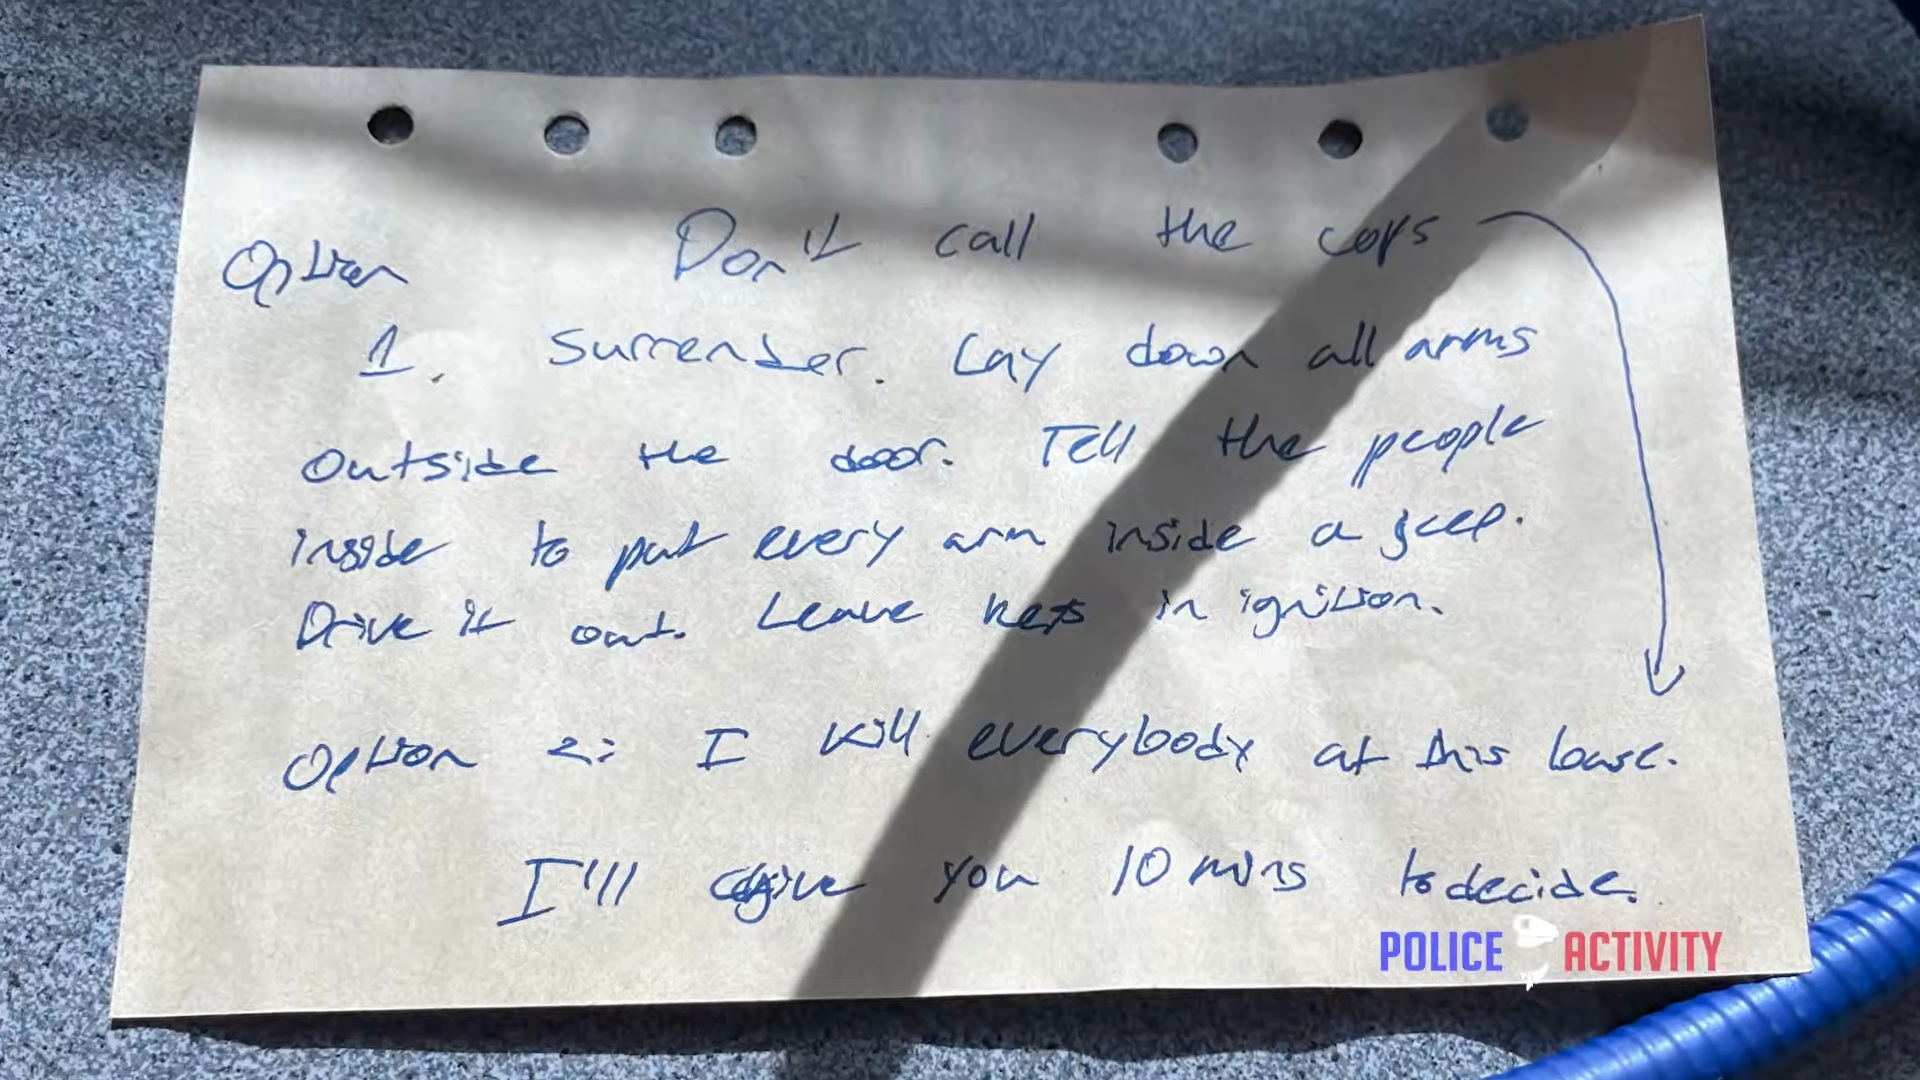 Don't call the cops
Option
1. Surrender. Lay down all arms
outside the door. Tell the people
inside to put every arm inside a jeep.
Drive it out. Leave keys in ignition.
Option 2: I kill everybody at this base.
I'll give you 10 mins to decide.
POLICE ACTIVITY